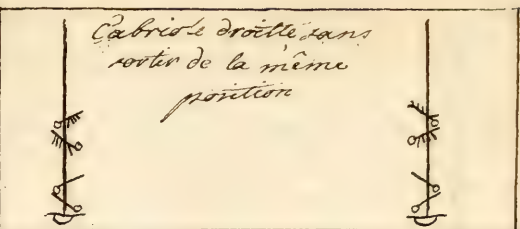 Cabriole droitte sans
sortir de la même
position